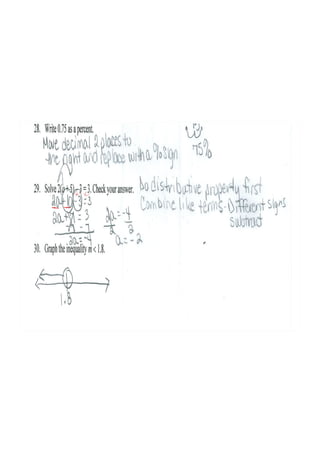 28. Write 0.75 as a percent.
Move decimal 2 places to
the right and replace with a % sign
75%
29. Solve 2(a + 5) – 3 = 3. Check your answer.
Do distributive property first
Combine like terms. Different signs
subtract
2a + 10 - 3 = 3
2a + 7 = 3
- 7 - 7
2a = -4
2a = -4
2 2
a = -2
30. Graph the inequality m < 1.8.
1.8